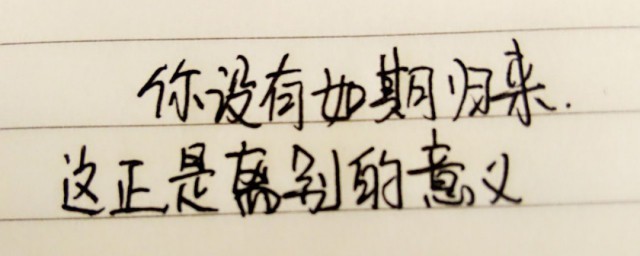 你没有如期归来.
这正是离别的意义